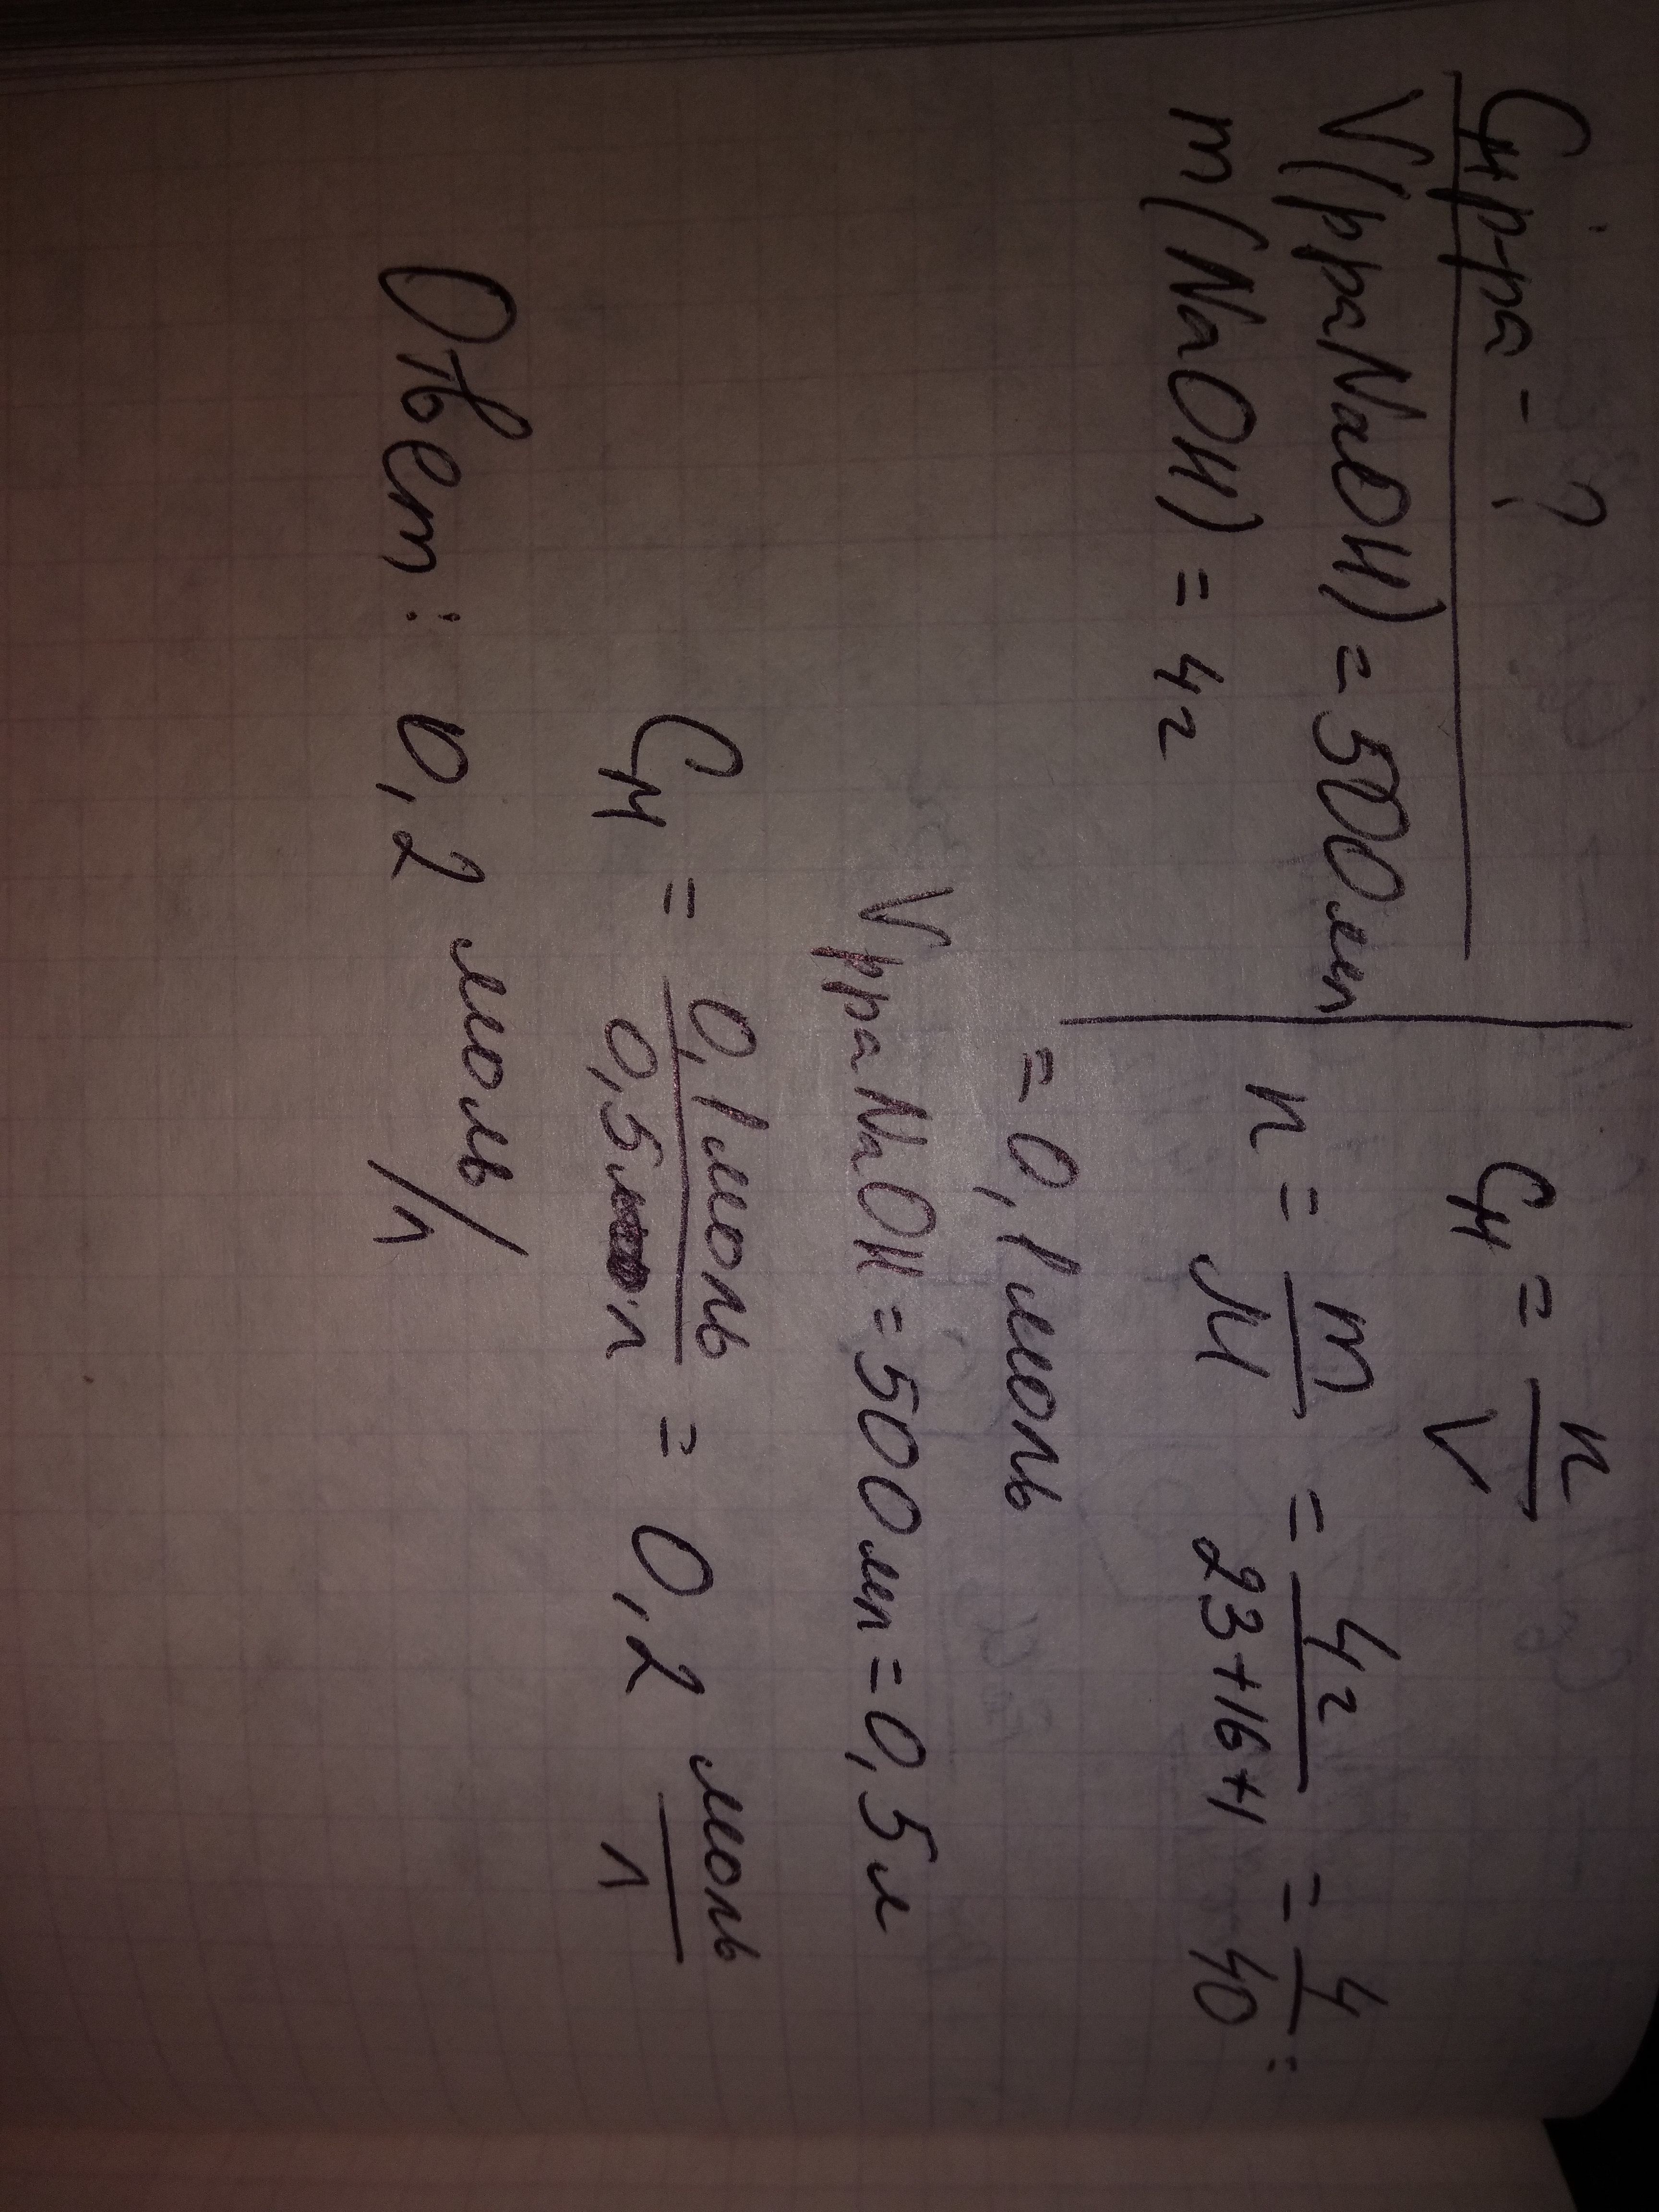 Cм р-ра - ?
V(рра NaOH) = 500мл
m(NaOH) = 4г
Cм = n/V
n = m/M = 4г/23+16+1 = 4/40 =
= 0,1 моль
V рра NaOH = 500мл = 0,5 л
Cм = 0,1 моль/0,5 л = 0,2 моль/л
Ответ: 0,2 моль/л